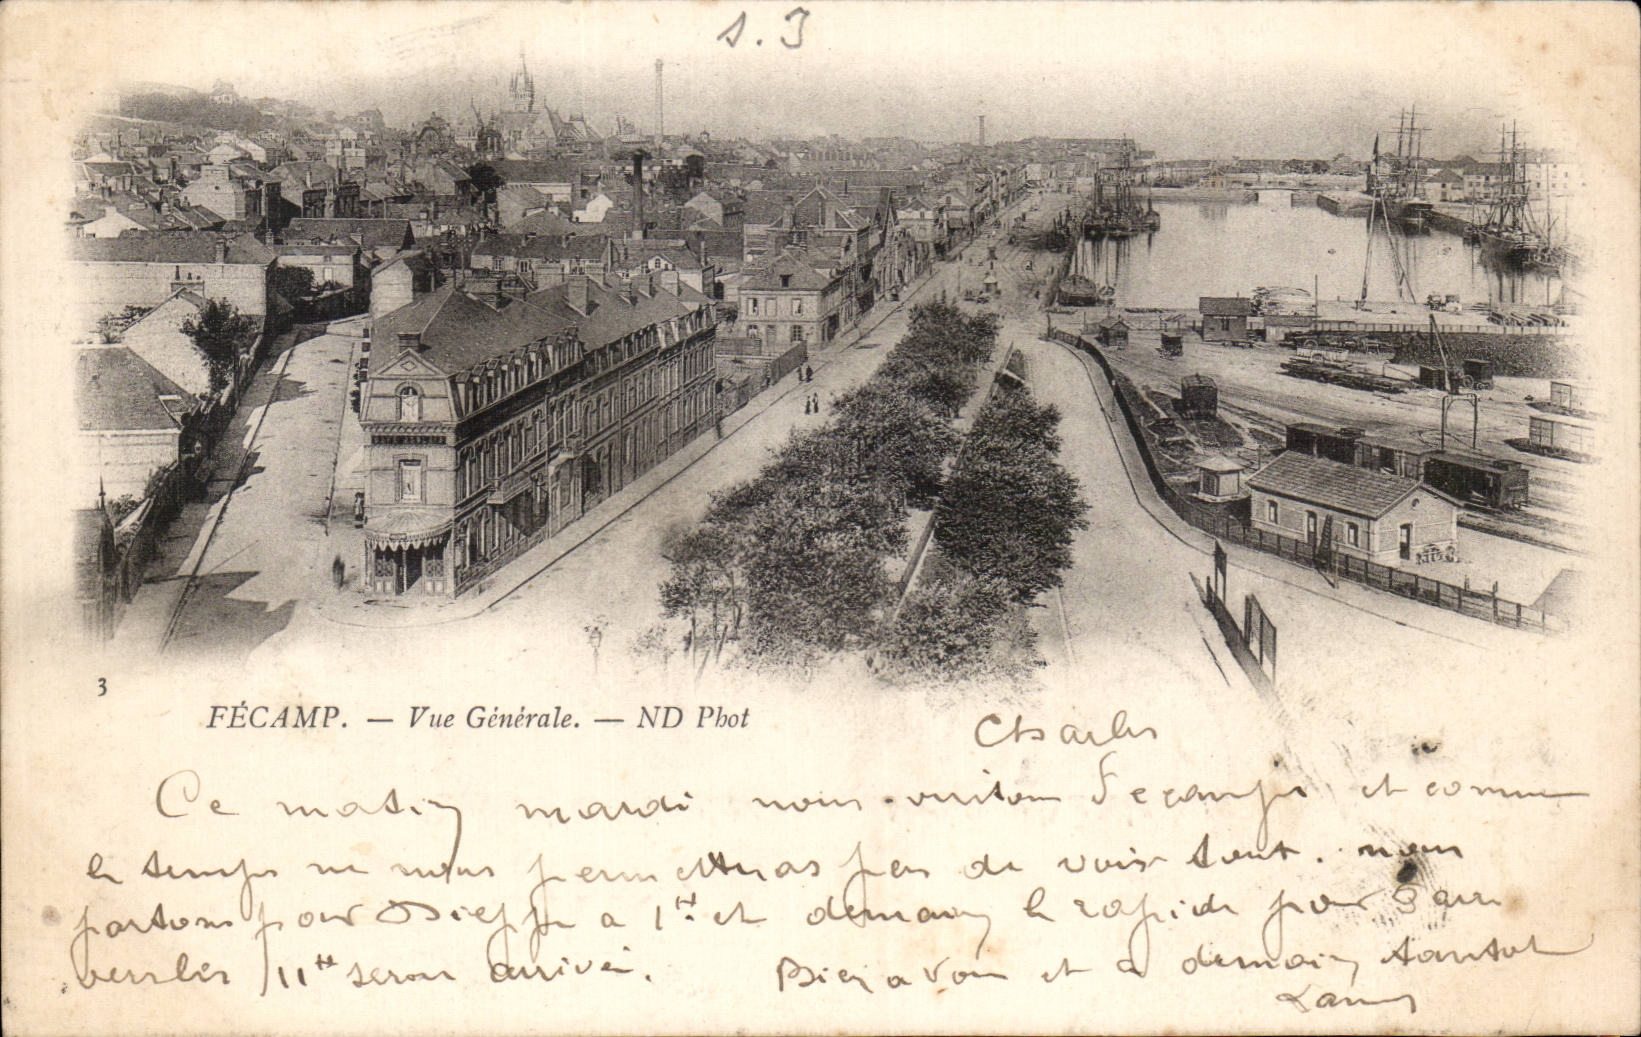 s.3
3
FÉCAMP. — Vue Générale. — ND Phot
Charles
Ce matin mardi nous visitons Fecamp et comme
le temps ne nous permettras pas de voir tout. nous
partons pour Dieppe a 1 H et demain le rapide pour
vers les 11 H serons arrivé. Bien a vous et a demain tantot